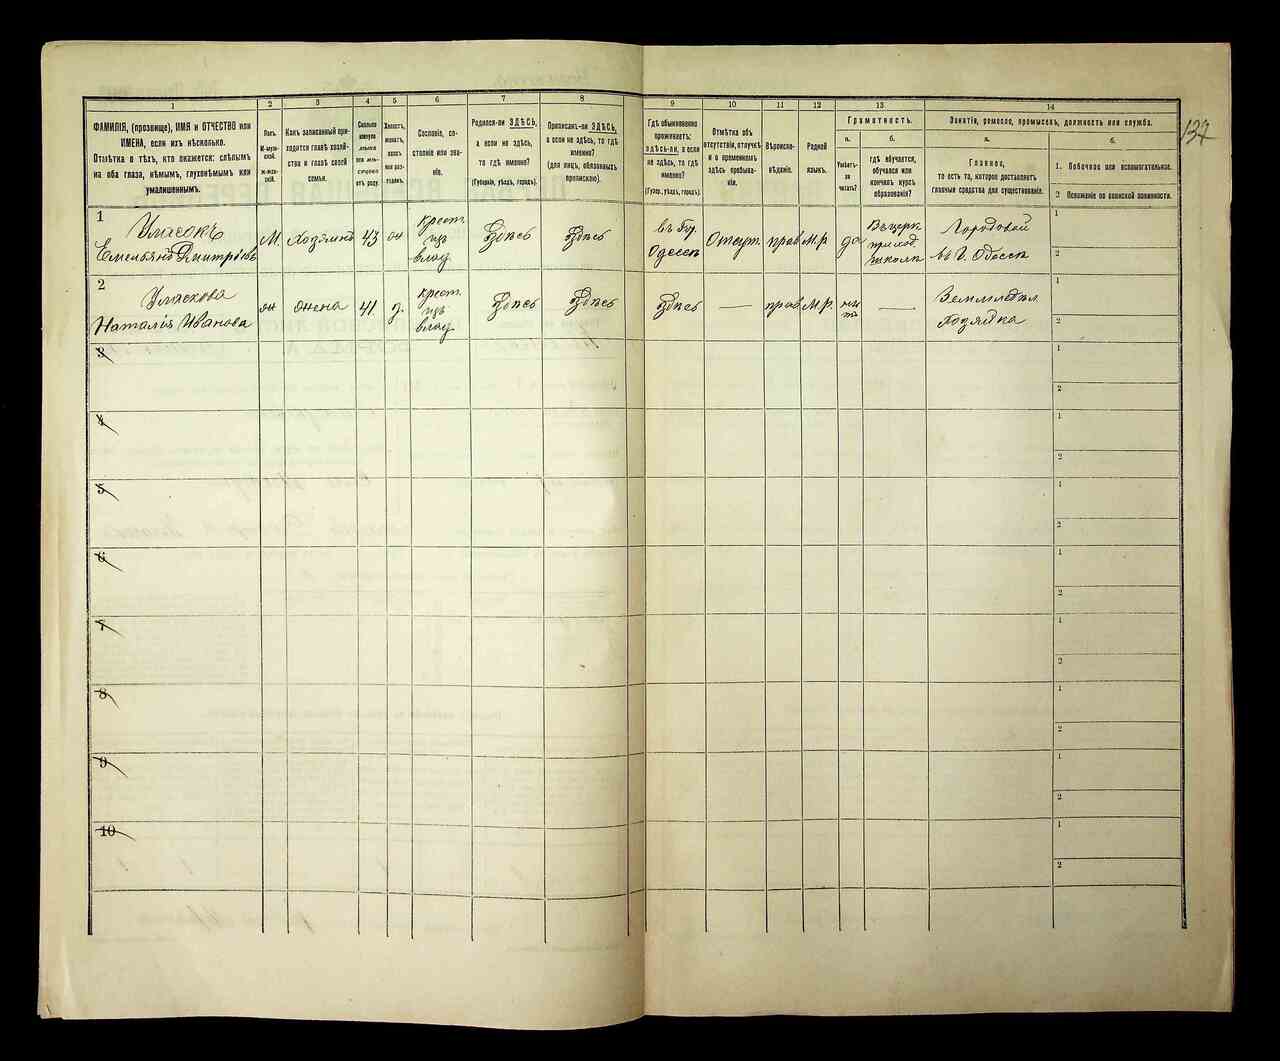 1
2
3
4
5
6
7
8
9
10
11
12
13
14
ФАМИЛІЯ, (прозвище), ИМЯ и ОТЧЕСТВО или
ИМЕНА, если ихъ нѣсколько.
Отмѣтка о тѣхъ, кто окажется: слѣпымъ
на оба глаза, нѣмымъ, глухонѣмымъ или
умалишеннымъ.
Полъ.
М-муж-
ской.
Ж-жен-
скій.
Какъ записанный при-
ходится главѣ хозяй-
ства и главѣ своей
семьи.
Сколько
минуло
лѣтъ
или мѣ-
сяцевъ
отъ роду.
Холостъ,
женатъ,
вдовъ
или раз-
веденъ.
Сословіе, со-
стояніе или зва-
ніе.
Родился-ли ЗДѢСЬ,
а если не здѣсь,
то гдѣ именно?
(Губернія, уѣздъ, городъ).
Приписанъ-ли ЗДѢСЬ,
а если не здѣсь, то гдѣ
именно?
(для лицъ, обязанныхъ
припискою).
Гдѣ обыкновенно
проживаетъ:
здѣсь-ли, а если
не здѣсь, то гдѣ
именно?
(Губер., уѣздъ, городъ).
Отмѣтка объ
отсутствіи, отлучкѣ
и о временномъ
здѣсь пребыва-
ніи.
Вѣроиспо-
вѣданіе.
Родной
языкъ.
Грамотность.
а.
Умѣетъ-
ли
читать?
б.
гдѣ обучается,
обучался или
кончилъ курсъ
образованія?
Занятіе, ремесло, промыселъ, должность или служба.
а.
Главное,
то есть то, которое доставляетъ
главныя средства для существованія.
б.
1. Побочное или вспомогательное.
2 Положеніе по воинской повинности.
137
1
Емельянъ Дмитріевъ
М.
Хозяинъ
43
жн
крест.
изъ
влад.
Здѣсь
Здѣсь
въ гу.
Одессѣ
Отсут.
прав
М.Р.
да
Въ церк
приход
школѣ
Городовой
въ г. Одессѣ
1
2
2
Наталія Иванова
жн
жена
41
з.
крест.
изъ
влад.
Здѣсь
Здѣсь
Здѣсь
—
прав
М.Р.
нѣ
тъ
—
Земледѣл.
Хозяйка
1
2
3
1
2
4
1
2
5
1
2
6
1
2
7
1
2
8
1
2
9
1
2
10
1
2